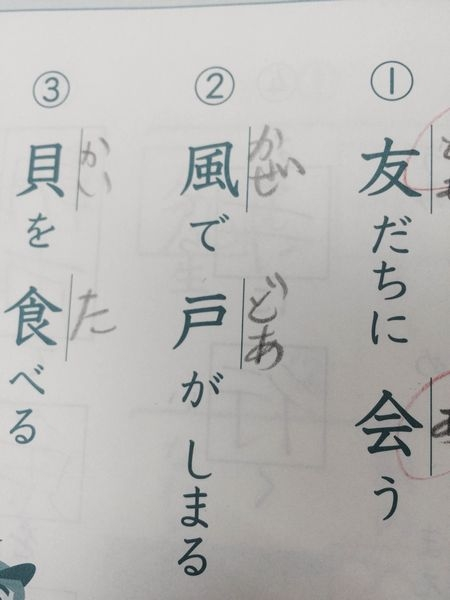 ① 友だちに 会う
かぜ どあ
② 風で 戸が しまる
かい た
③ 貝を 食べる